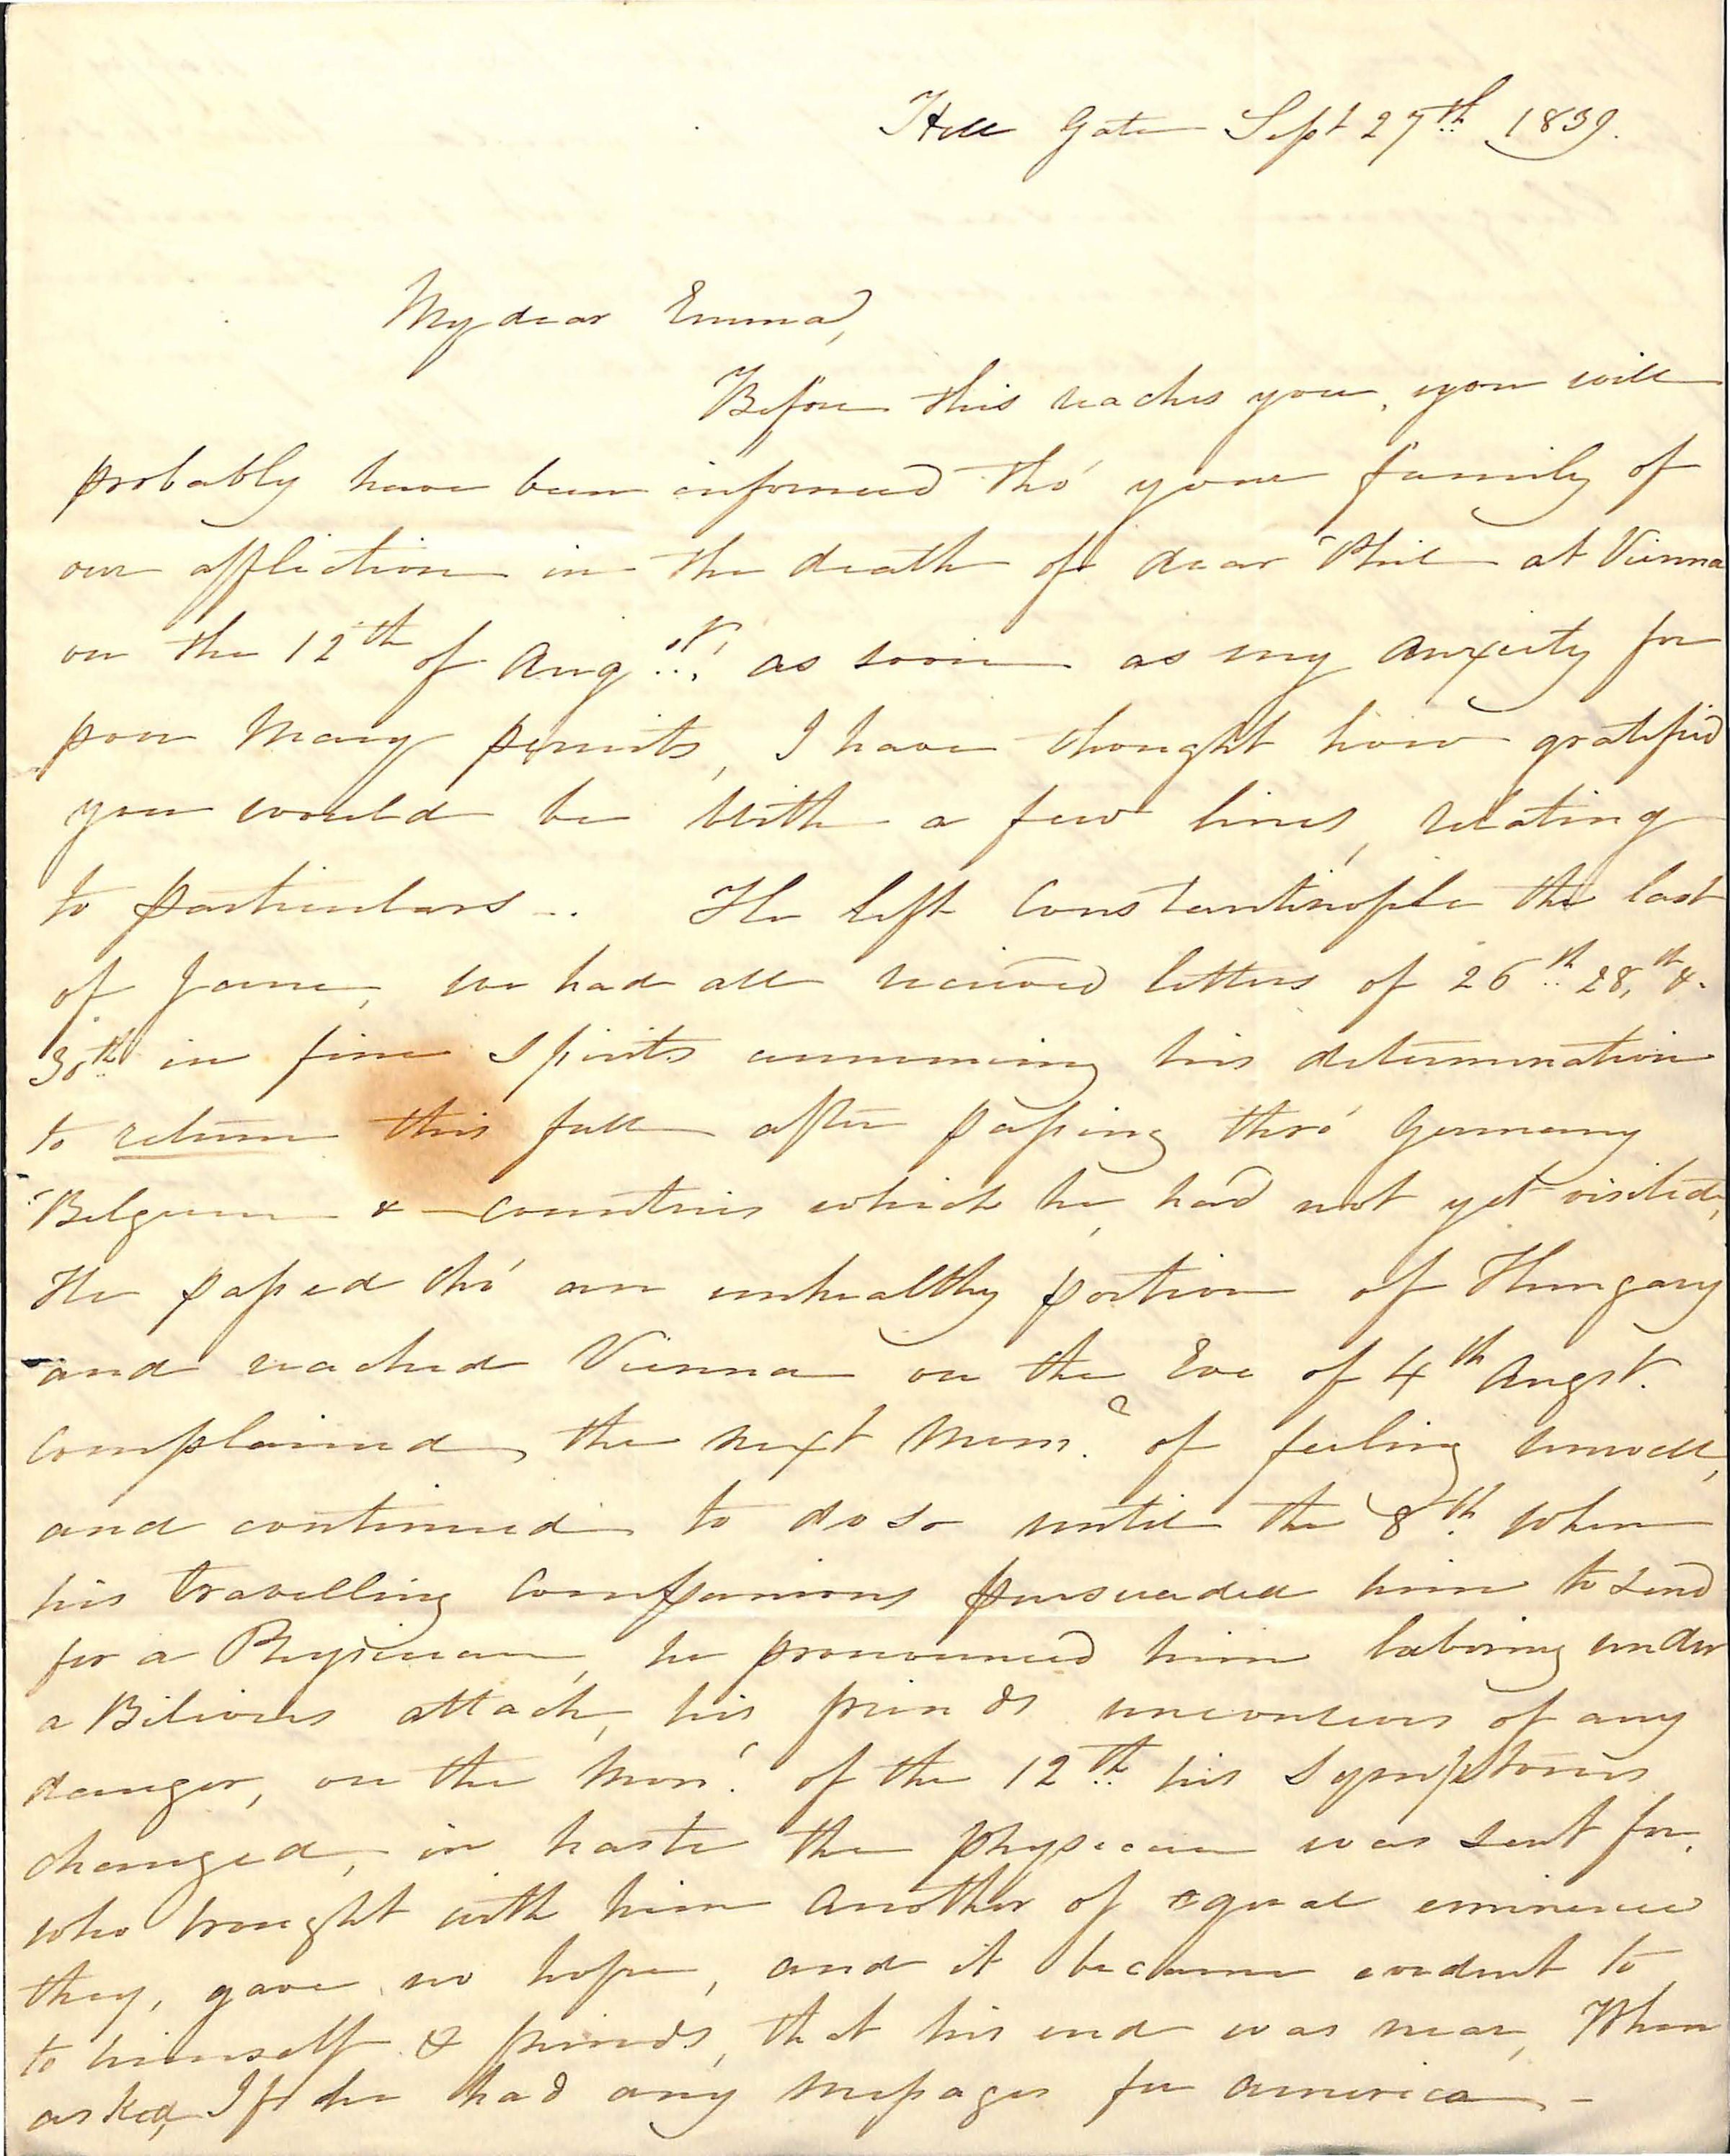 Hell Gate Sept 27th 1839.
My dear Emma,
Before this reaches you, you will
probably have been informed thó your family of
our affliction in the death of dear Phil at Vienna
on the 12th of Augst, as soon as my anxiety for
poor Mary permits, I have thought how gratified
you would be with a few lines, relating
to particulars.. He left Constantinople the last
of June, we had all recieved letters of 26th 28,th &
30th in fine spirits announcing his determination
to return this fall after passing thró Germany
Belgium & countries which he had not yet visited,
He passed thó an unhealthy portion of Hungary
and reached Vienna on the Eve of 4th Augst.
complained the next Morng of feeling unwell,
and continued to do so until the 8th when
his travelling companions pursuaded him to send
for a Physician, he pronounced him laboring under
a Bilious attack, his friends unconscious of any
danger, on the Morn. of the 12th his symptoms
changed, in haste the physician was sent for,
who brought with him another of equal eminence
they, gave no hope, and it became evident to
to himself & friends, that his end was near, When
asked, If he had any messages for America -